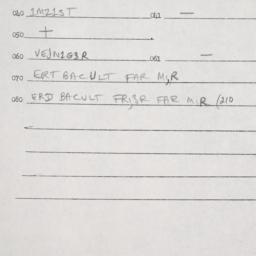 040 1MZ1ST 041 —
050 +
060 VEJN1G3R 061 —
070 ERT BACULT FAR M;R
080 ERD BACULT FR;3R FAR M;R /210